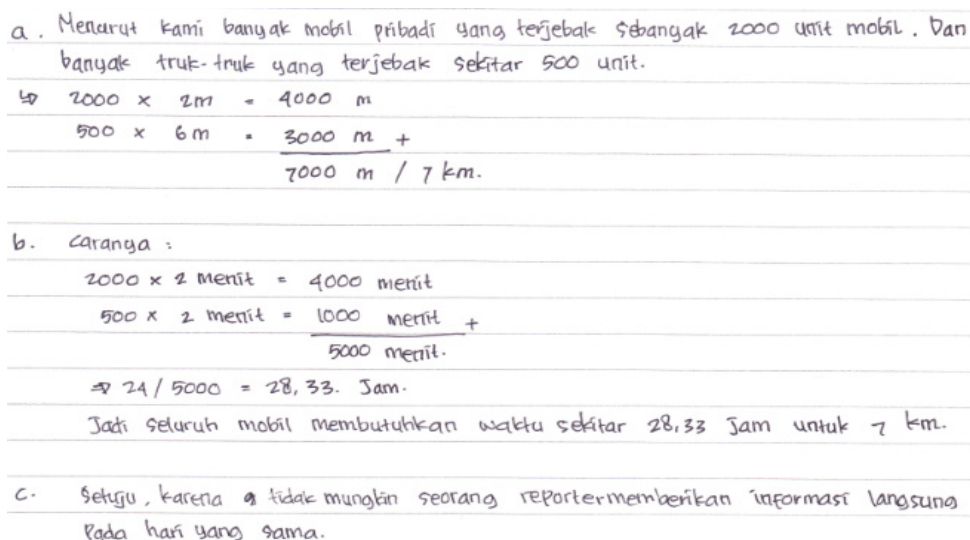 a. Menurut kami banyak mobil pribadi yang terjebak sebanyak 2000 unit mobil. Dan
banyak truk-truk yang terjebak sekitar 500 unit.
↳ 2000 × 2m = 4000 m
500 × 6 m = 3000 m +
7000 m / 7 km.
b. caranya :
2000 × 2 menit = 4000 menit
500 × 2 menit = 1000 menit +
5000 menit.
⇒ 24 / 5000 = 28,33. Jam.
Jadi seluruh mobil membutuhkan waktu sekitar 28,33 Jam untuk 7 km.
c. Setuju, karena tidak mungkin seorang reportermemberikan informasi langsung
Pada hari yang sama.